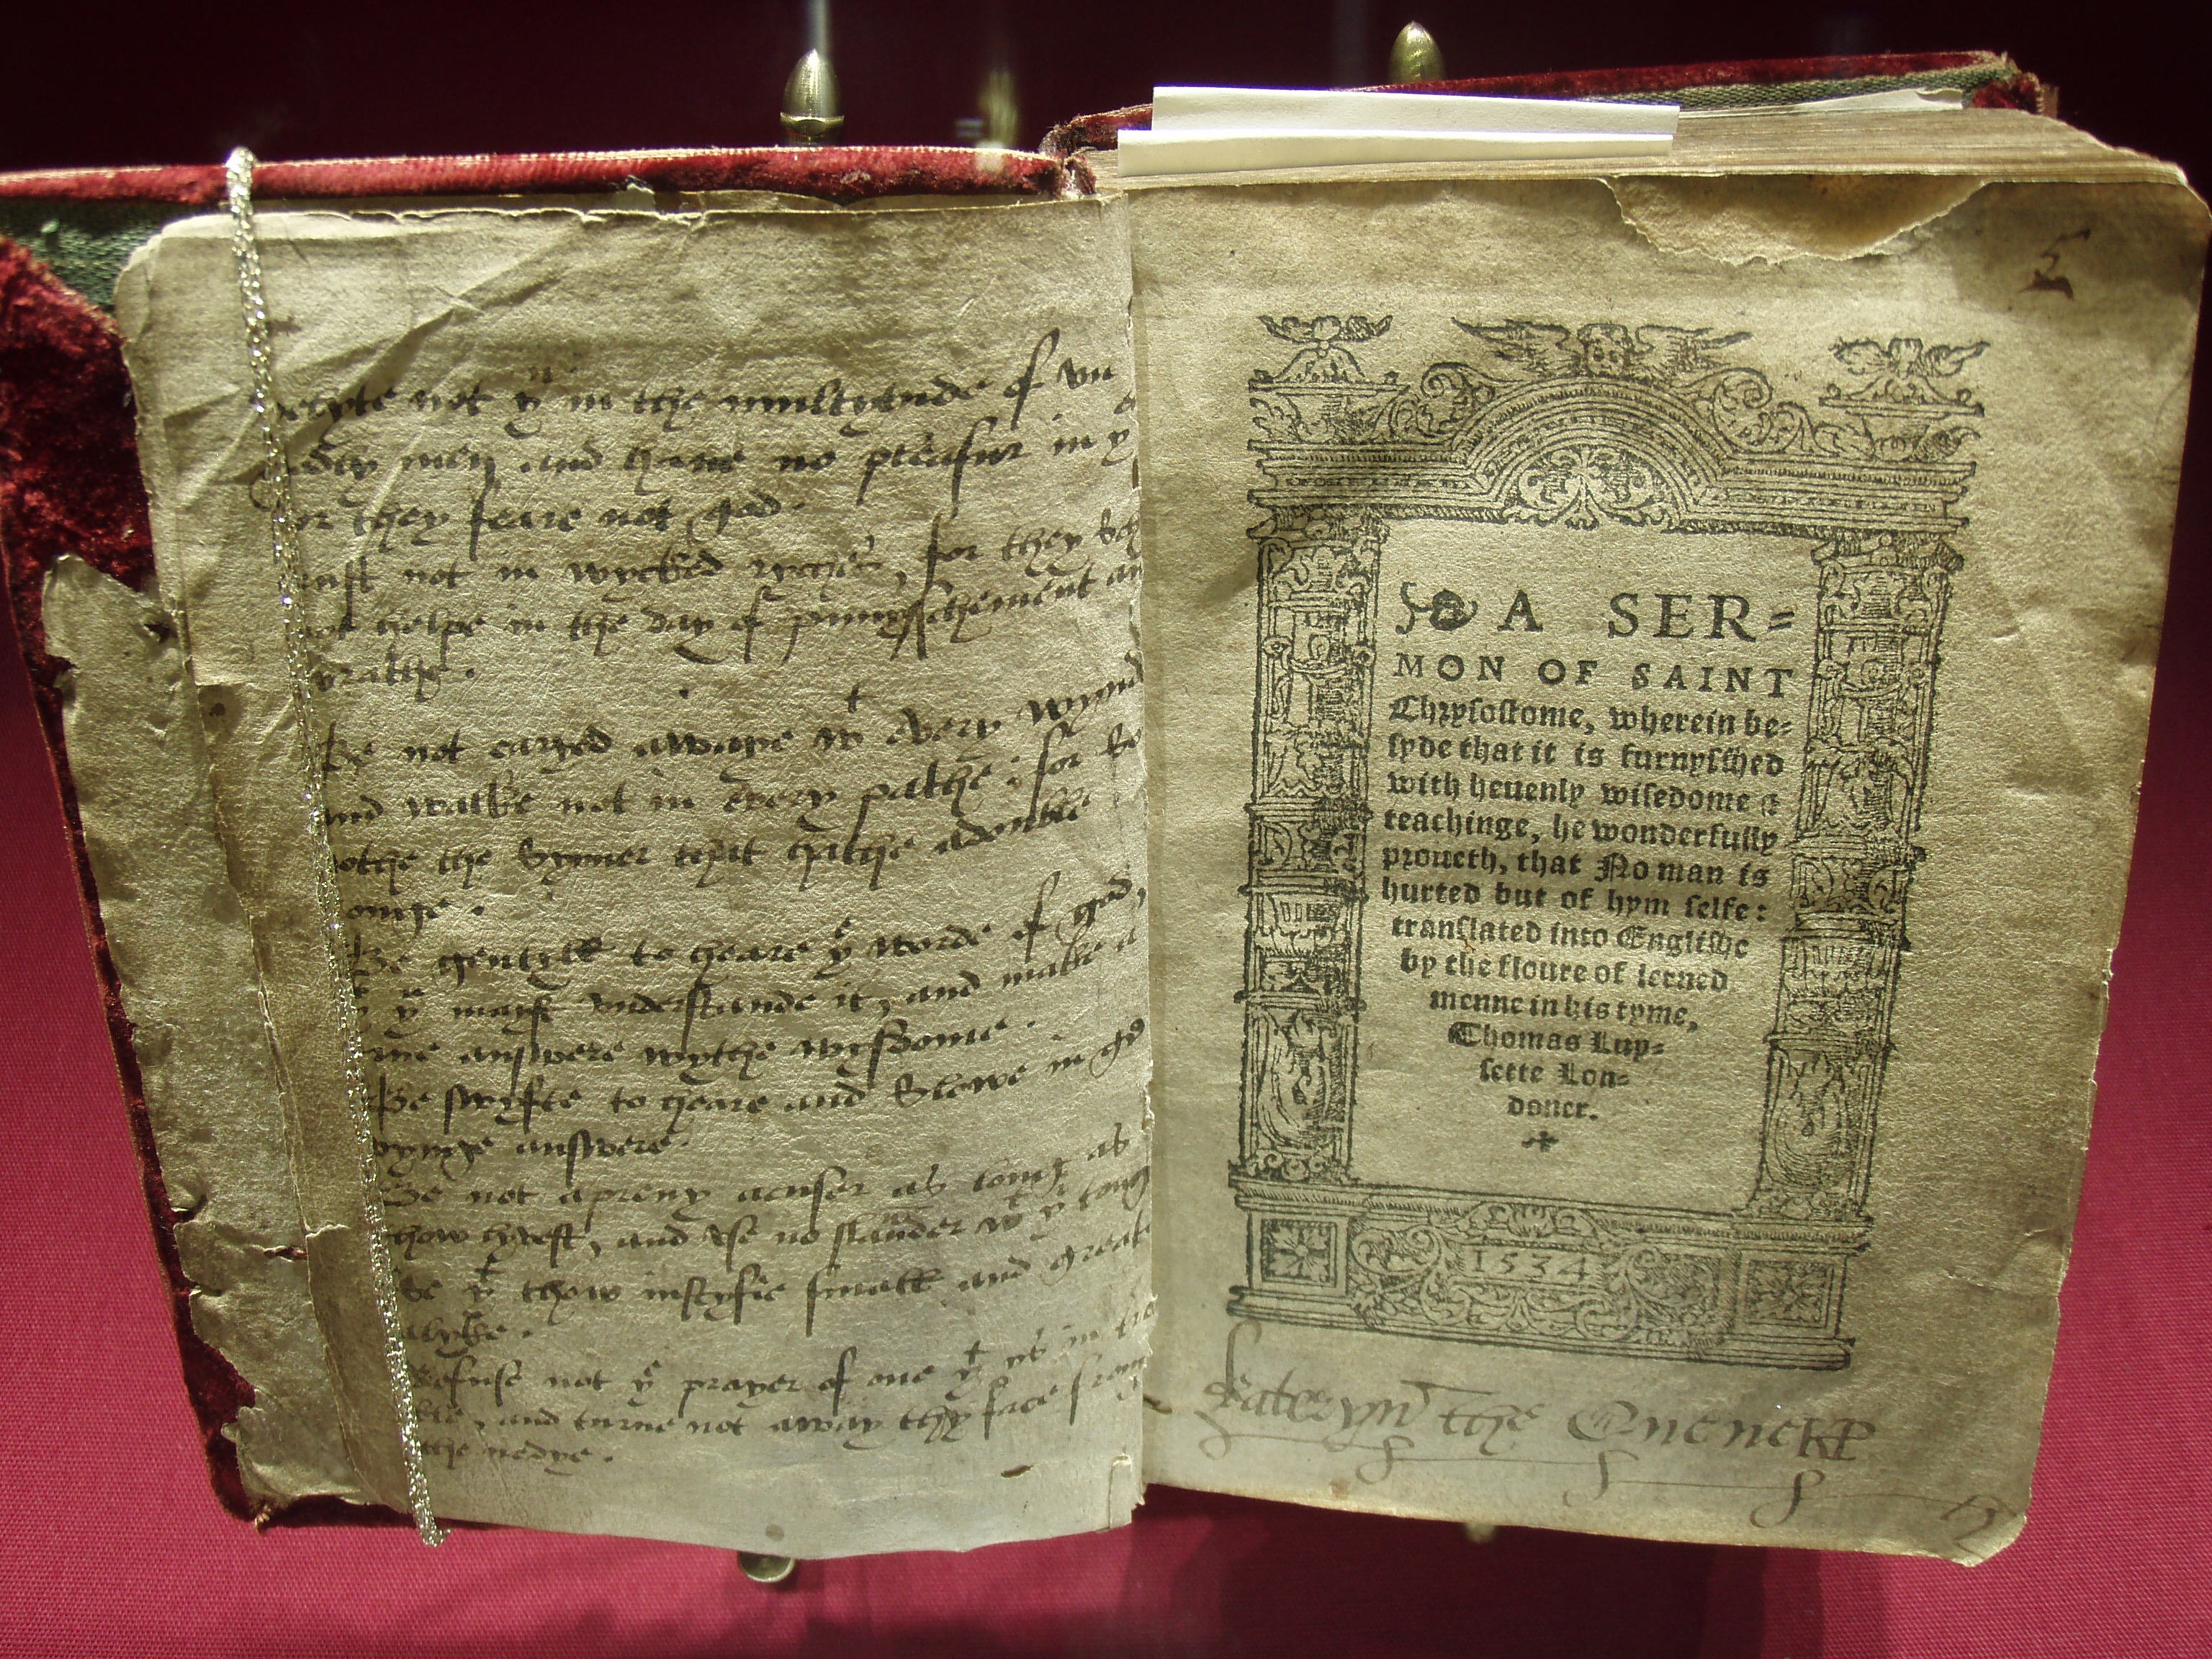 not yͤ in the multytude of vn
men and haue no pleasur in yͤ
they feare not god.
not in wycked ryches, for they
helpe in the day of punnysschement
wrathe.
Be not caryed awaye wͭ every wynd
and walke not in every pathe: for so
the Synner that hathe a double
tonge.
Be gentyll to heare yͤ worde of god,
yͭ yͧ mayst vnderstande it, and make
answere wythe wysdome.
Be swyfte to heare and Slowe in
gyvynge answere.
Be not a preuy acuser as long as
thow lyvest, and vse no slander wͭ yͤ tong
Se yͭ thow instyfie small and greate
alyke.
Refuse not yͤ prayer of one yͭ ys in
and turne not away thy face from
the nedye.
5
A SER=
MON OF SAINT
Chrysostome, wherein be=
syde that it is furnysshed
with heuenly wisedome &
teachinge, he wonderfully
proueth, that No man is
hurted but of hym selfe:
translated into Englisshe
by the floure of lerned
menne in his tyme,
Thomas Lup=
sette Lon=
doner.
1534
Kateryn the Quene KP